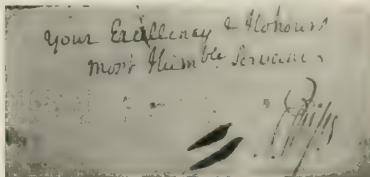 Your Excellency & Honours
most Humble Servant